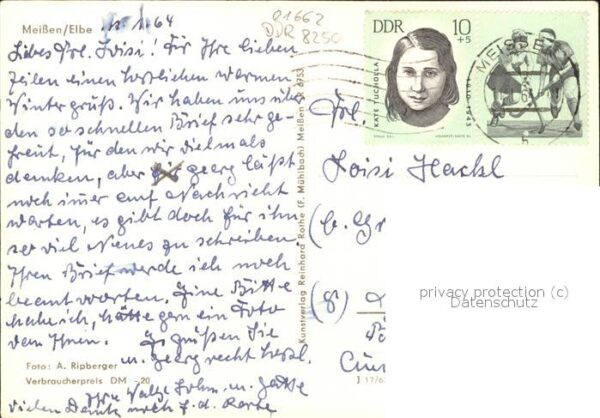 Meißen/Elbe
1. 64
01662
DDR 8250
Liebes Frl. Loisi! Für Ihre lieben
Zeilen einen herzlichen warmen
Wintergruß. Wir haben uns über
den so schnellen Brief sehr ge-
freut, für den wir vielmals
danken, aber Georg läßt
noch immer auf Nachricht
warten, es gibt doch für ihn
so viel Neues zu schreiben.
Ihren Brief werde ich noch
beantworten. Eine Bitte
habe ich, hätte gern ein Foto
von Ihnen. Es grüßen Sie
u. Georg recht herzl.
Foto: A. Ripberger
Verbraucherpreis DM -.20
Ihre u. Gatte
vielen Dank noch f. d. Karte
Kunstverlag Reinhard Rothe (F. Mühlbach) Meißen 6753
J 17/6
DDR 10
+5
KÄTE TUCHOLLA
1910-1943
MEISSEN
Frl.
Loisi Hackl
(b. Gr
(8)
privacy protection (c)
Datenschutz